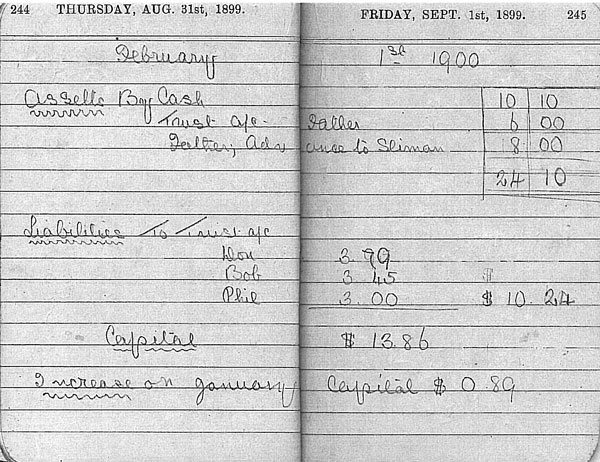 244 THURSDAY, AUG. 31st, 1899.
FRIDAY, SEPT. 1st, 1899. 245
February 1st 1900
Assetts By Cash 10 10
Trust a/c - Father 6 00
Father, Advance to Sliman 8 00
24 10
Liabilities To Trust a/c
Don 3.79
Bob 3 45
Phil 3.00 $ 10.24
Capital $ 13.86
Increase on January Capital $ 0.89